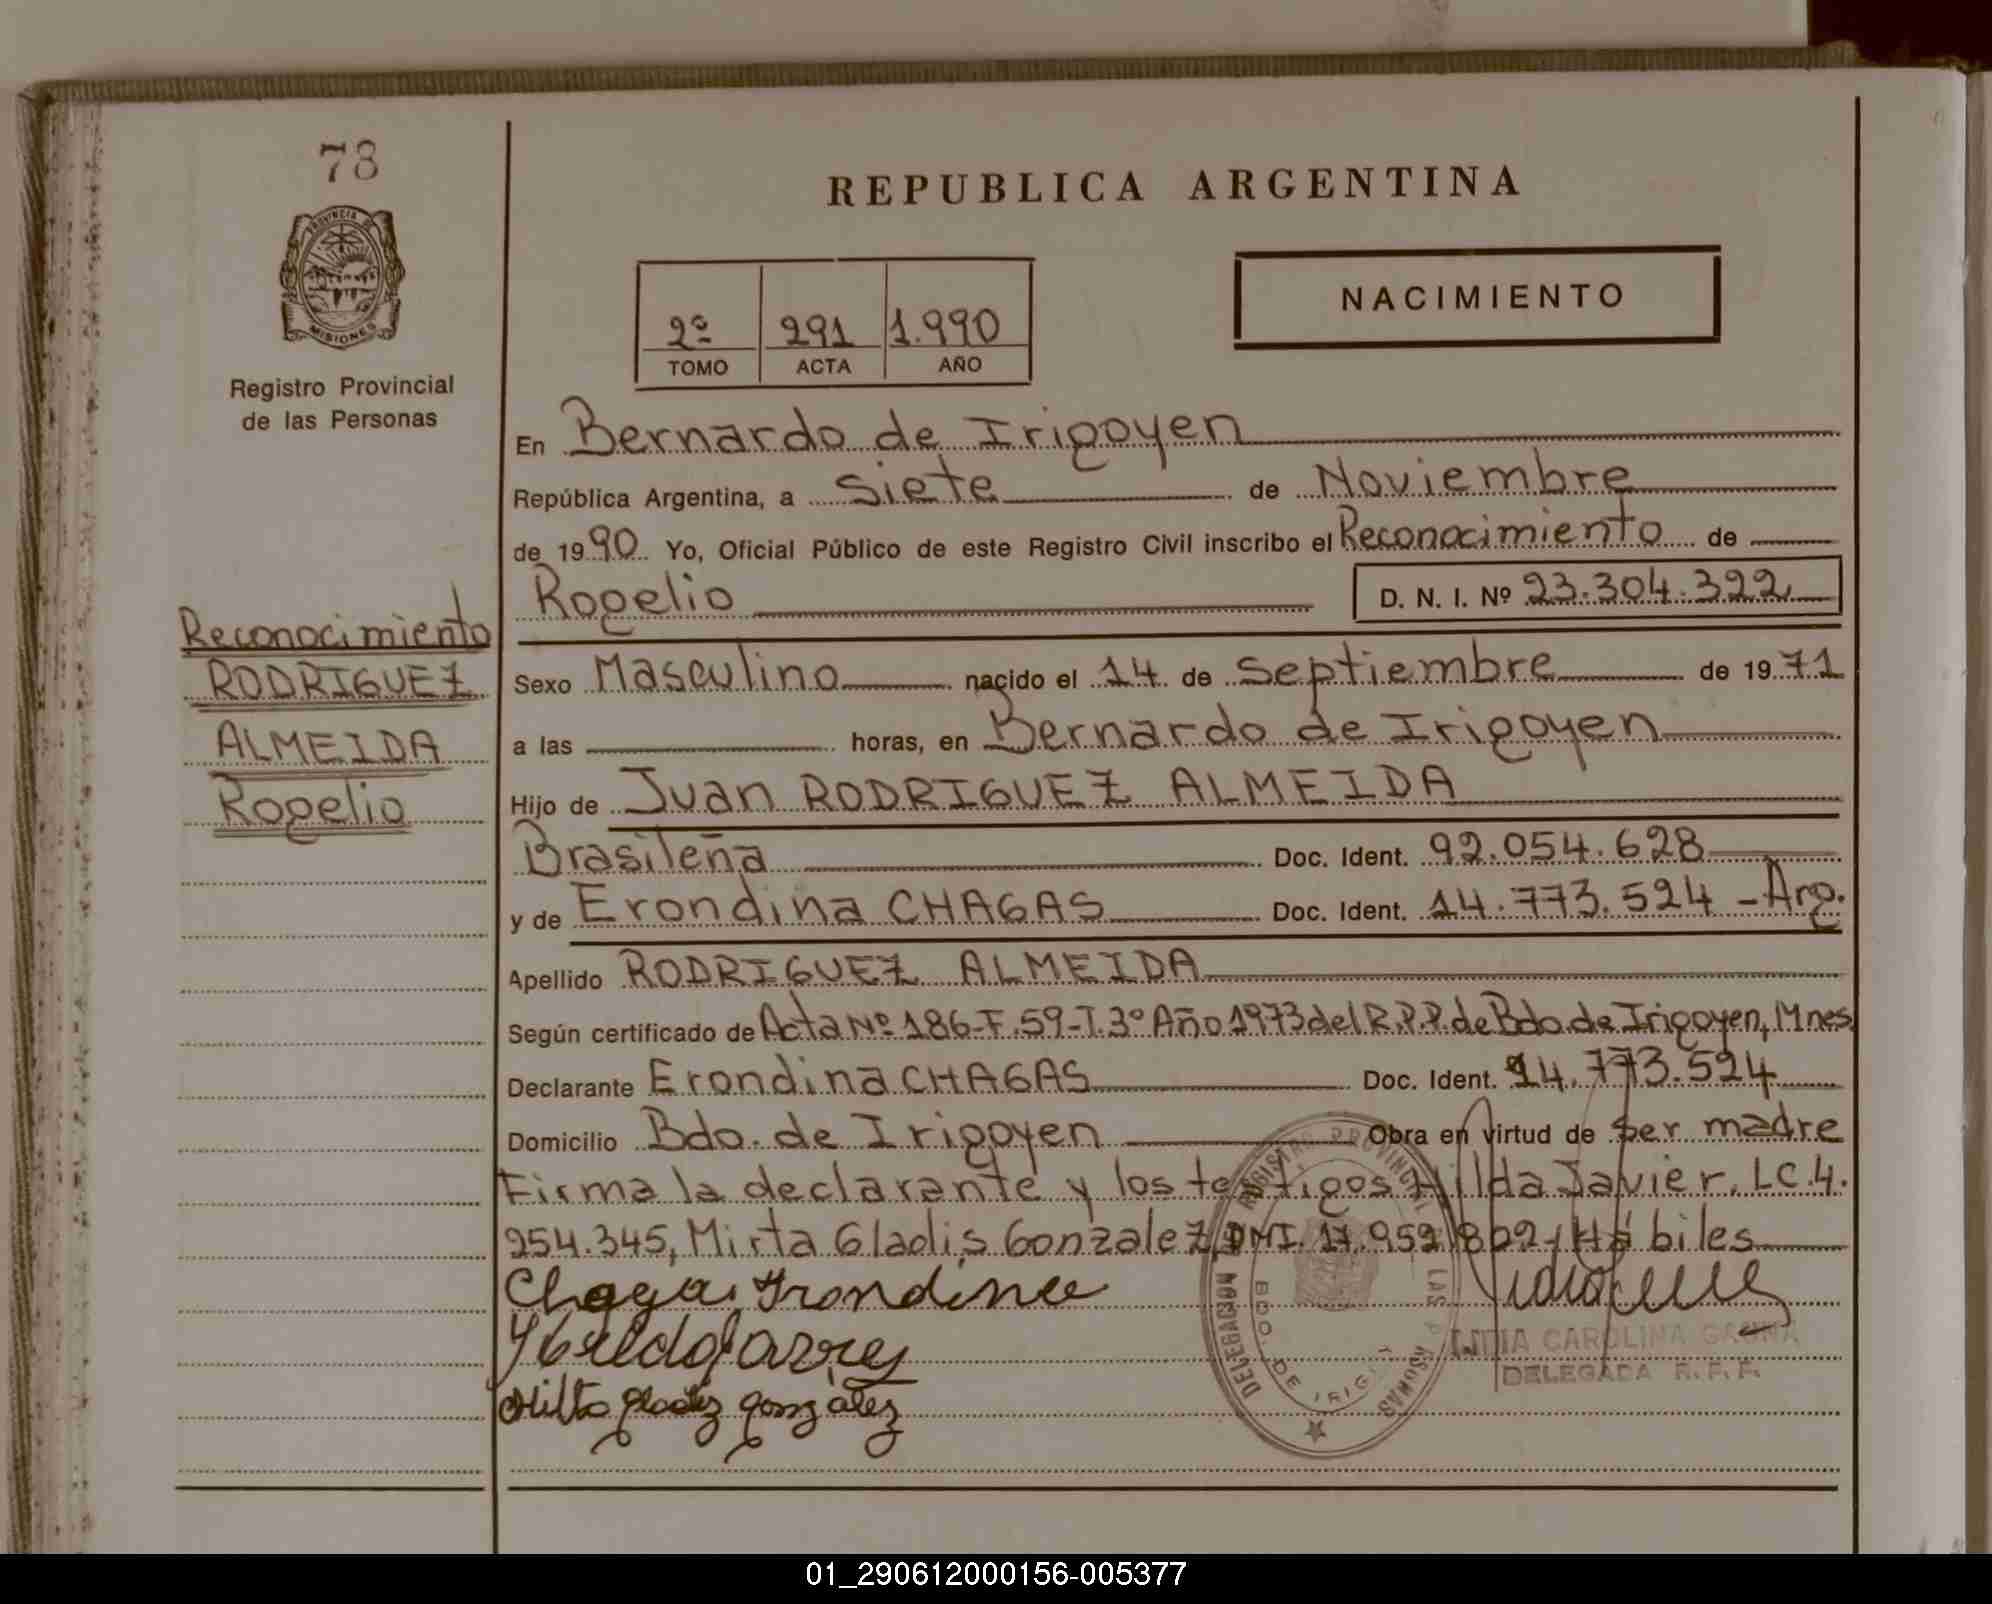 73
PROVINCIA DE
MISIONES
Registro Provincial
de las Personas
Reconocimiento
RODRIGUEZ
ALMEIDA
Rogelio
REPUBLICA ARGENTINA
2º 291 1.990
TOMO ACTA AÑO
NACIMIENTO
En Bernardo de Irigoyen
República Argentina, a siete de Noviembre
de 1990 Yo, Oficial Público de este Registro Civil inscribo el Reconocimiento de
Rogelio D. N. I. Nº 23.304.322
Sexo Masculino nacido el 14 de Septiembre de 1971
a las horas, en Bernardo de Irigoyen
Hijo de Juan RODRIGUEZ ALMEIDA
Brasileña Doc. Ident. 92.054.628
y de Erondina CHAGAS Doc. Ident. 14.773.524 - Arg.
Apellido RODRIGUEZ ALMEIDA
Según certificado de Acta Nº 186-F.59-T.3º Año 1973 del R.P.P. de Bdo. de Irigoyen, Mnes.
Declarante Erondina CHAGAS Doc. Ident. 14.773.524
Domicilio Bdo. de Irigoyen Obra en virtud de ser madre
Firma la declarante y los testigos Hilda Javier, LC.4.
254.345, Mirta Gladis Gonzalez, DNI. 17.959.802, Hábiles
Chagas
gonzalez
REGISTRO PROVINCIAL DE LAS PERSONAS
DELEGACION
BDO. DE IRIG.
CAROLINA
DELEGADA R. P. P.
01_290612000156-005377